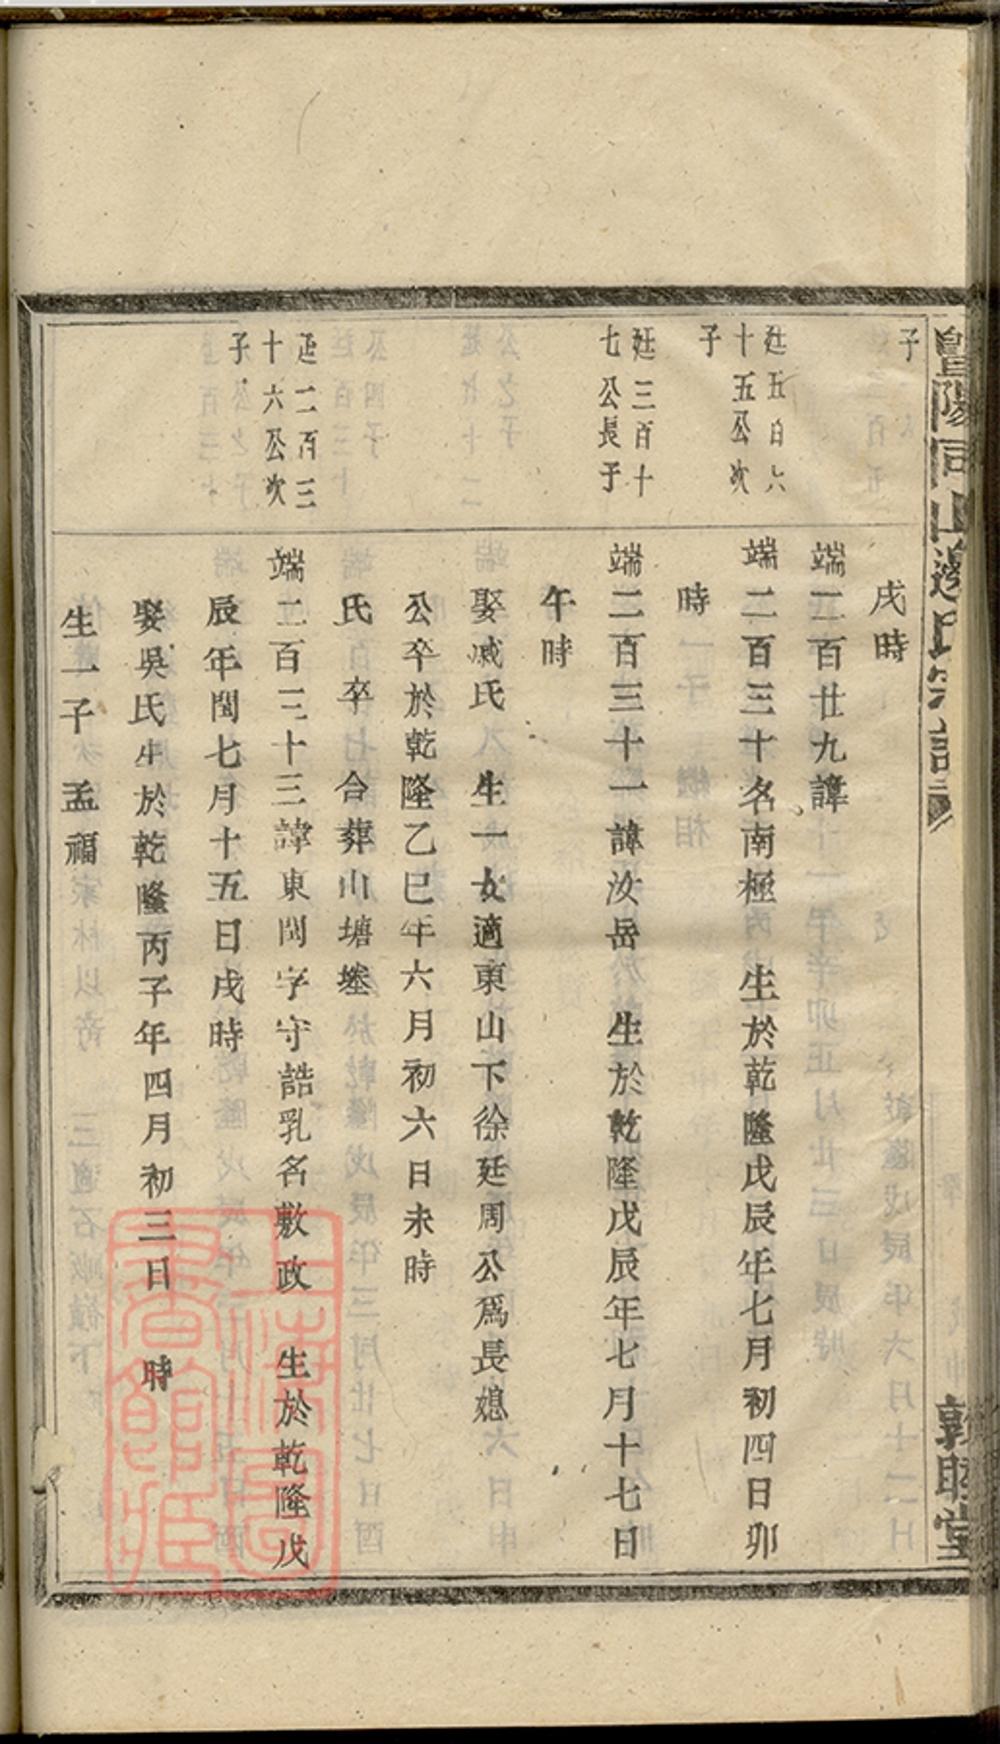 暨陽同山邊氏宗譜
敦睦堂
子
戌時
端二百廿九諱
廷五百六
十五公次
子
端二百三十名南極 生於乾隆戊辰年七月初四日卯
時
廷三百十
七公長子
端二百三十一諱汝岳 生於乾隆戊辰年七月十七日
午時
娶戚氏 生一女適東山下徐廷周公爲長媳
公卒於乾隆乙巳年六月初六日未時
氏卒 合葬山塘塋
廷二百三
十六公次
子
端二百三十三諱東閩字守誥乳名敷政 生於乾隆戊
辰年閏七月十五日戌時
娶吳氏生於乾隆丙子年四月初三日 時
生一子 孟福
上海圖書館藏